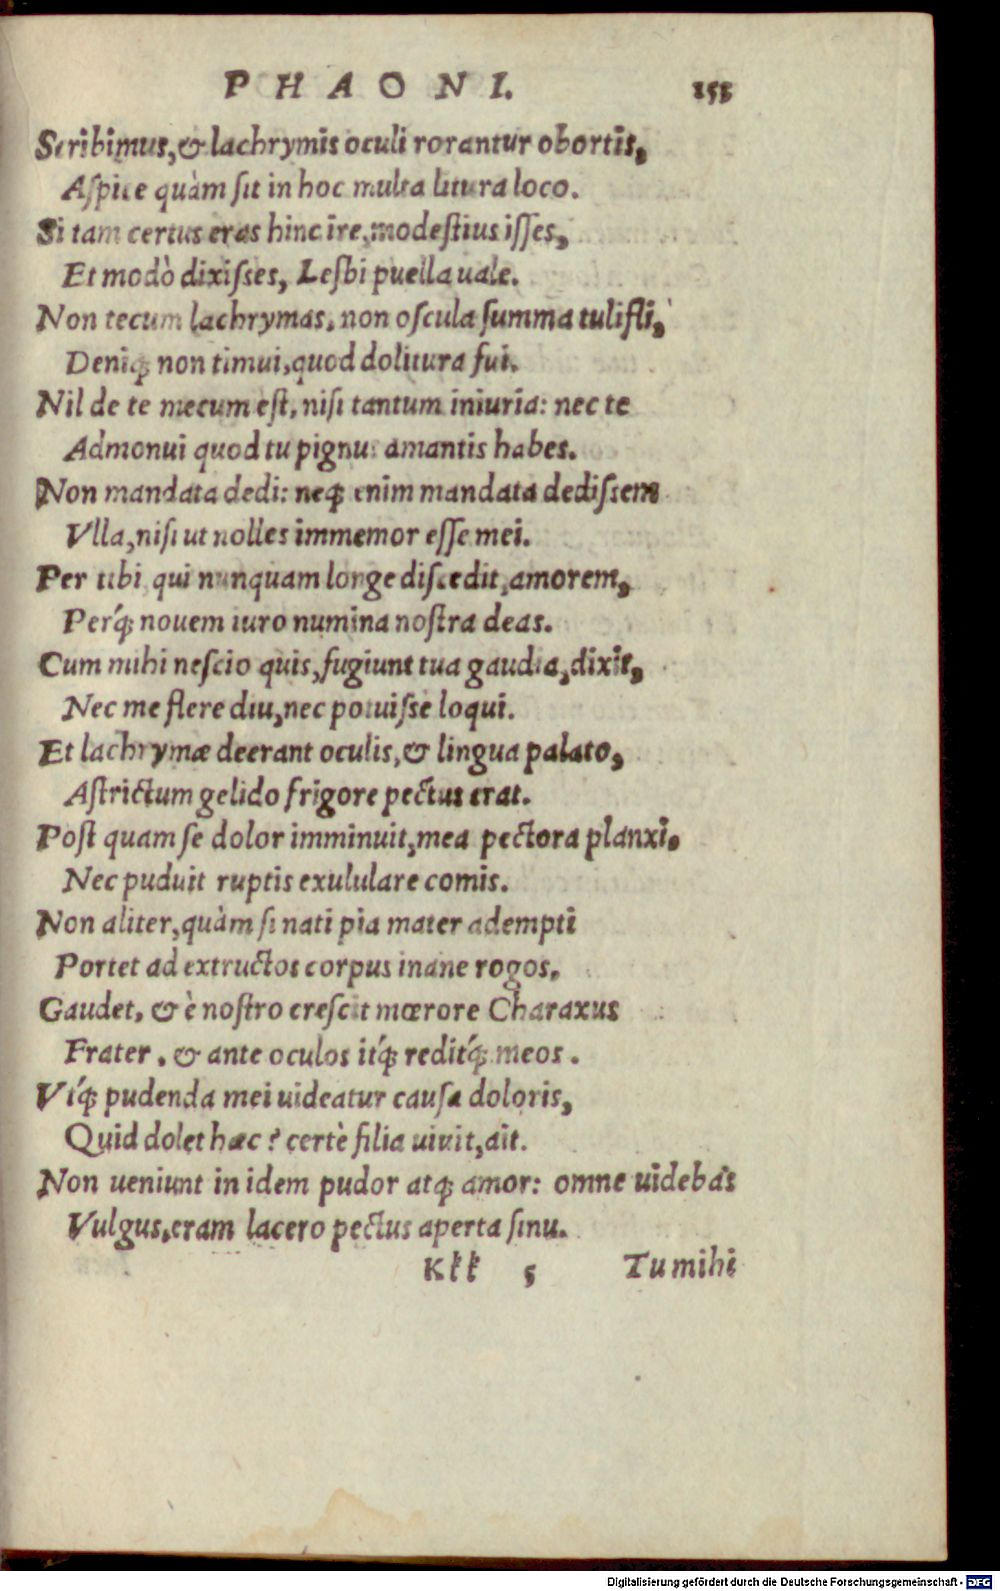 PHAONI. 155
Scribimus, & lachrymis oculi rorantur obortis,
Aspice quàm sit in hoc multa litura loco.
Si tam certus eras hinc ire, modestius isses,
Et modò dixisses, Lesbi puella uale.
Non tecum lachrymas, non oscula summa tulisti,
Deniq; non timui, quod dolitura fui.
Nil de te mecum est, nisi tantum iniuria: nec te
Admonui quod tu pignus amantis habes.
Non mandata dedi: neq; enim mandata dedissem
Vlla, nisi ut nolles immemor esse mei.
Per tibi qui nunquam longe discedit, amorem,
Perq́; nouem iuro numina nostra deas.
Cum mihi nescio quis, fugiunt tua gaudia, dixit,
Nec me flere diu, nec potuisse loqui.
Et lachrymæ deerant oculis, & lingua palato,
Astrictum gelido frigore pectus erat.
Post quam se dolor imminuit, mea pectora planxi.
Nec puduit ruptis exululare comis.
Non aliter, quàm si nati pia mater adempti
Portet ad extructos corpus inane rogos.
Gaudet, & è nostro crescit mœrore Charaxus
Frater, & ante oculos itq́; reditq́; meos.
Vtq́; pudenda mei uideatur causa doloris,
Quid dolet hæc? certè filia uiuit, ait.
Non ueniunt in idem pudor atq; amor: omne uidebas
Vulgus, eram lacero pectus aperta sinu.
Kkk 5 Tu mihi
Digitalisierung gefördert durch die Deutsche Forschungsgemeinschaft - DFG